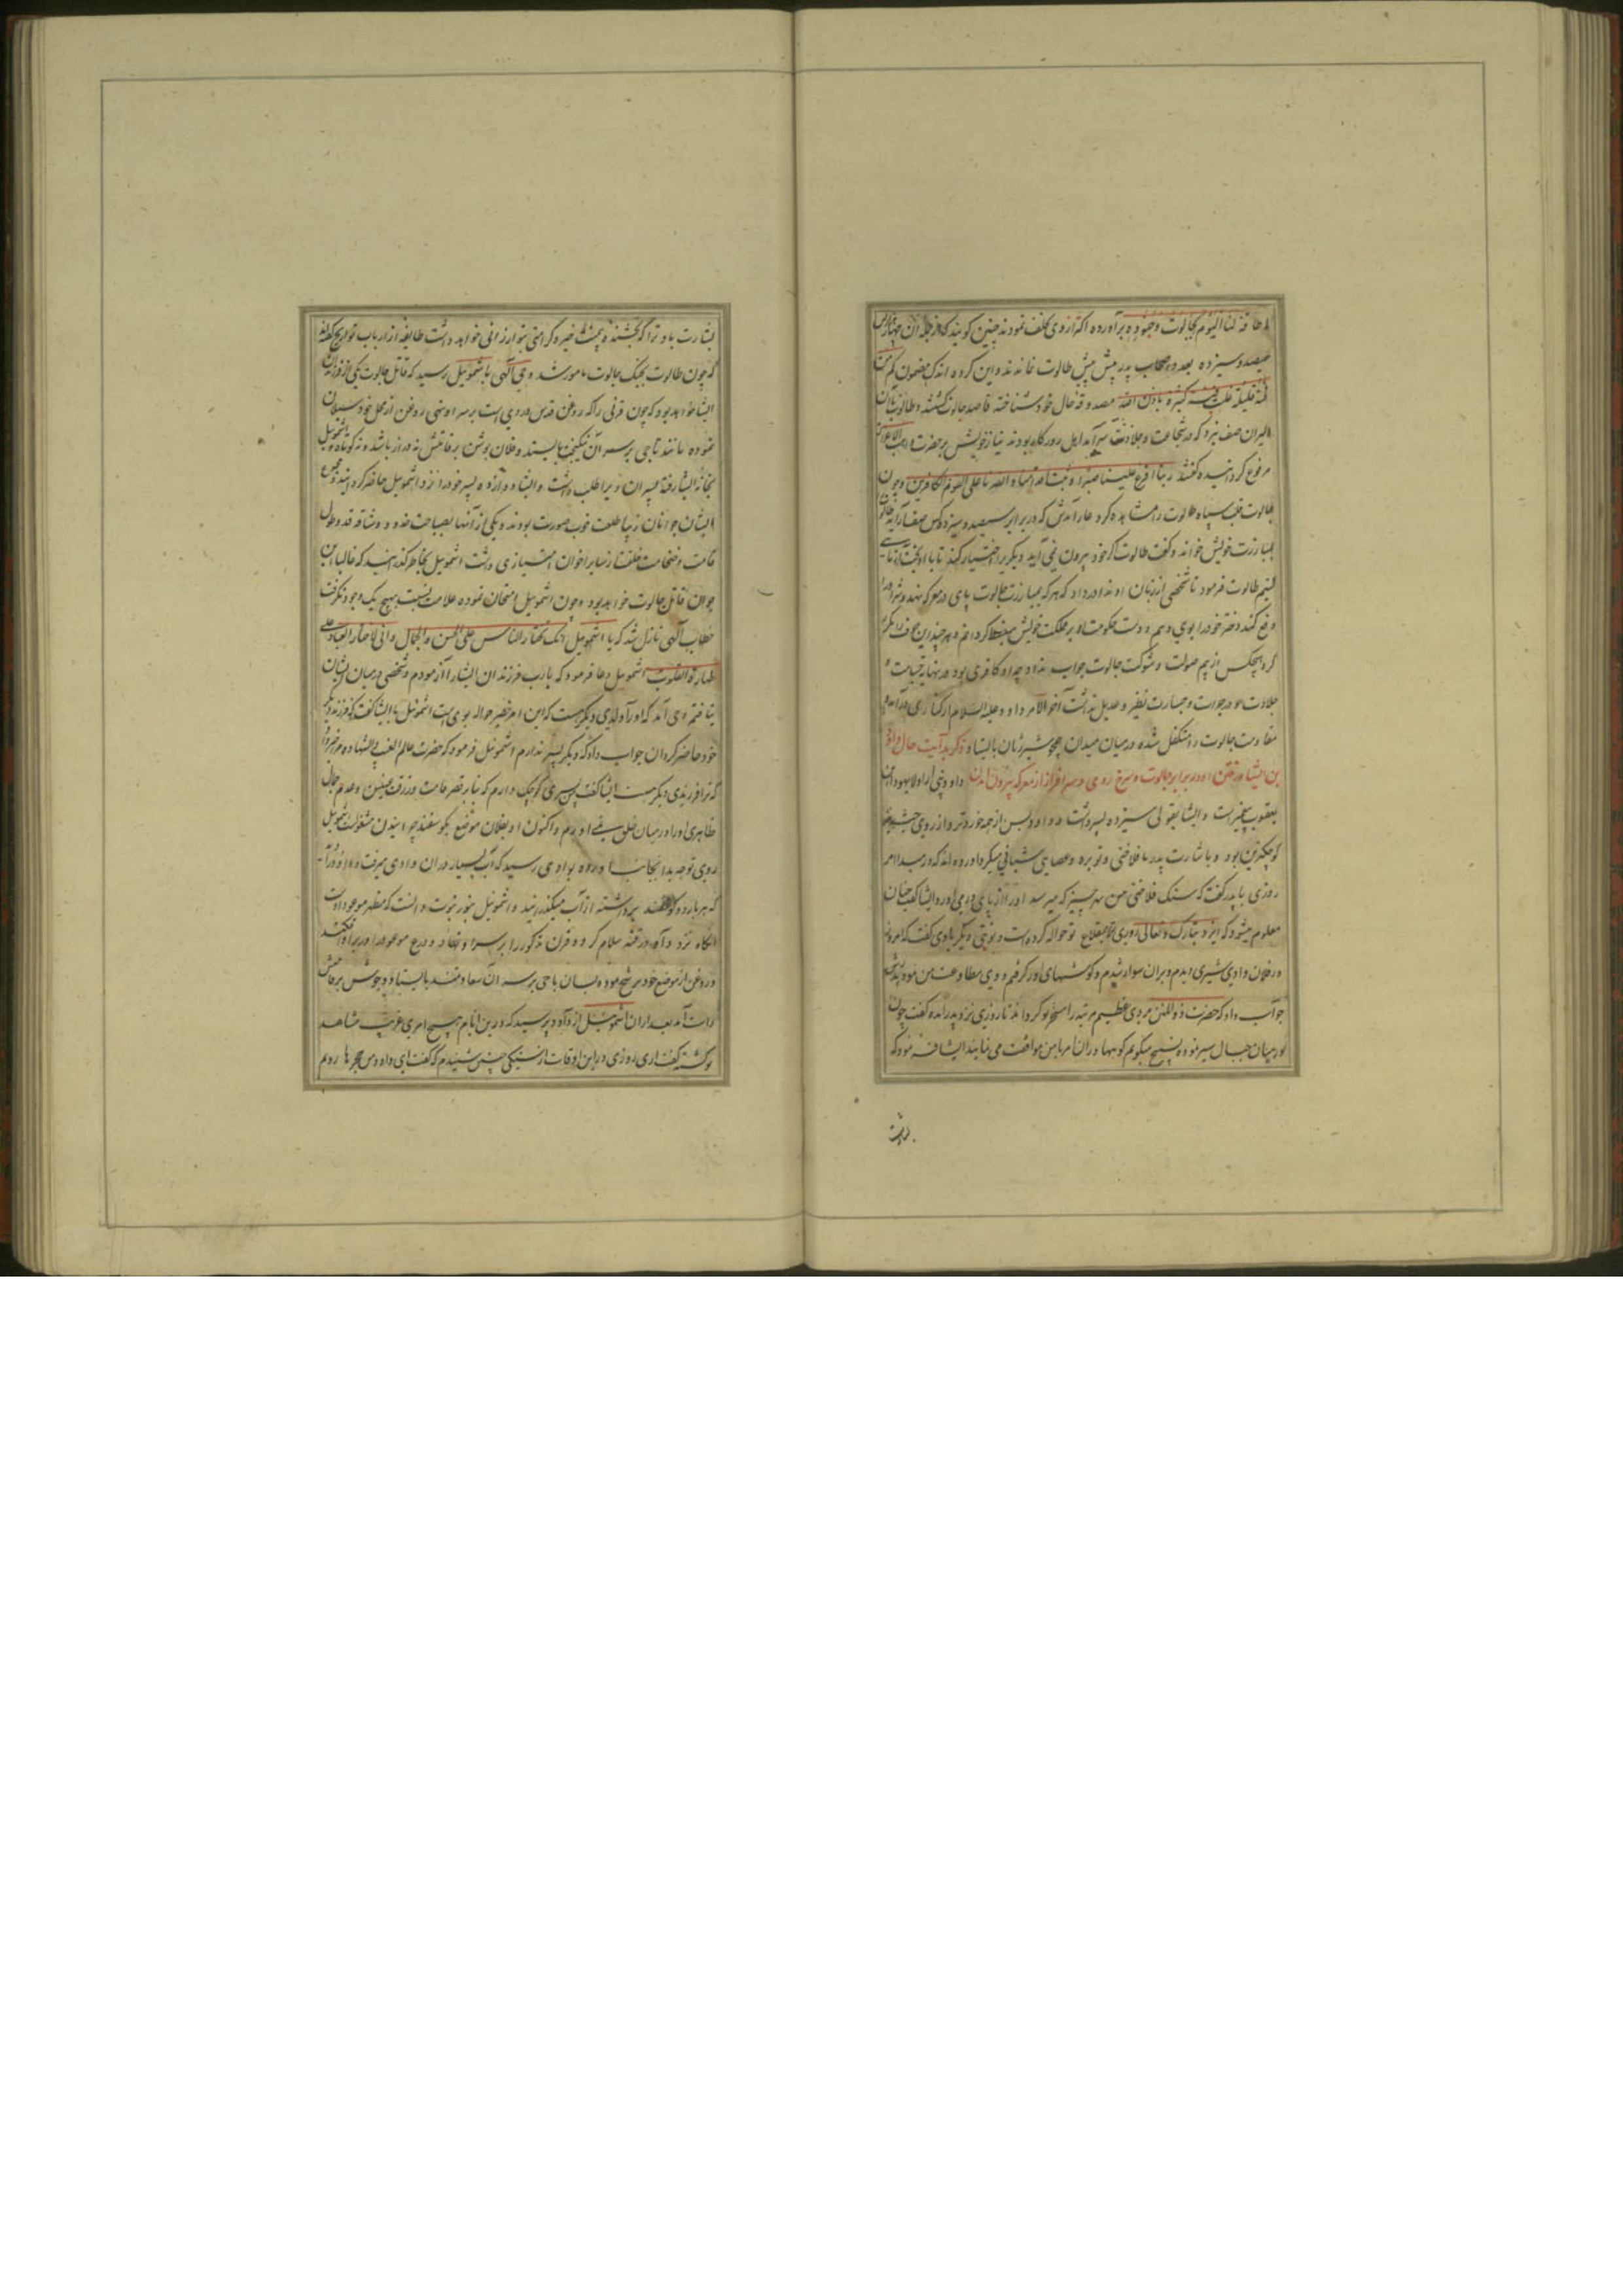 لا طاقة لنا الیوم بجالوت وجنوده برآورده اکثر ازوی تخلف نمودند چنین کویند که از جمله آن چهار هزار کس
سیصد وسیزده بعدد اصحاب بدر پیش طالوت نماندند واین کروه اندک بمضمون کم من
فئة قلیلة غلبت فئة کثیرة باذن الله مصدوقه حال خود شناخته قاصد جالوت کشتند وطالوت با آن
دلیران صف نبرد که در شجاعت وجلادت سرآمد اهل روزکار بودند نیاز خویش بر حضرت
مرفوع کردانیده کفتند ربنا افرغ علینا صبرا وثبت اقدامنا وانصرنا علی القوم الکافرین وچون
جالوت قلت سپاه طالوت را مشاهده کرد عار آمدش که در برابر سیصد وسیزده کس صف آراید طالوت را
بمبارزت خویش خواند وکفت طالوت اکر خود بیرون نمی آید دیکریرا اختیار کند تا با او
کنیم طالوت فرمود تا شخصی از زبان او ندا در داد که هر که بمبارزت جالوت پای در معرکه نهد وشر او را
دفع کند دختر خود را بوی دهم ودست حکومت او بر مملکت خویش کردانم وهر چند این
کرد هیچکس از بیم صولت وشوکت جالوت جواب نداد چه او کافری بود در نهایت جسامت و
جلادت ودر جرات وجسارت نظیر وعدیل نداشت آخر الامر داود علیه السلام از کناری درآمده
مقاومت جالوت را متکفل شده در میان میدان همچو شیر ژیان بایستاد ذکر بدایت حال داود
بن ایشا ورفتن او در برابر جالوت وسرخ روی وسرافراز از معرکه بیرون آمدن داود نبی از اولاد یهودا بن
یعقوب پیغمبر است وایشا بقولی سیزده پسر داشت وداود بسن از همه خوردتر واز روی جثه
کوچکترین بود وباشارت پدر با فلاخنی وتوبره وعصایی شبانی میکرد آورده اند که در مبدا امر
روزی با پدر کفت که سنک فلاخن من بهر چیز که میرسد او را از پای درمی آورد ایشا کفت چنان
معلوم میشود که ایزد تبارک وتعالی روزی ترا بمقلاع تو حواله کرده است ونوبتی دیکر با وی کفت که امروز
در فلان وادی شیری دیدم وبران سوار شدم وکوشهای او را کرفتم ووی مطاوعت من نمود پدرش
جواب داد که حضرت ذوالمنن مردی عظیم مرتبه را مسخر تو کرداند تا روزی نزد پدر آمده کفت چون
در میان جبال سیر نموده تسبیح میکویم کوهها در آن امر با من موافقت می نمایند ایشا فرمود که
بشارت
بشارت باد ترا که بخشنده بی منت خیر وکرامتی بتو ارزانی خواهد داشت طایفه از ارباب تواریخ کفته اند
که چون طالوت بجنک جالوت مامور شد وحی الهی باشموییل رسید که قاتل جالوت یکی از فرزندان
ایشا خواهد بود که چون قرنی را که روغن قدس در وی است بر سر او نهی روغن از محل خود سیلان
نموده مانند تاجی بر سر آن نیکبخت بایستد وفلان جوشن بر قامتش نه دراز باشد ونه کوتاه اشموییل
بخانه ایشا رفته پسران ویرا طلب داشت وایشا دوازده پسر خود را نزد اشموییل حاضر کردانید ومجموع
ایشان جوانان زیبا طلعت خوب صورت بودند ویکی از آنها بصباحت خد ورشاقت قد وطول
قامت وضخامت خلقت از سایر اخوان امتیازی داشت اشموییل بخاطر کذرانید که غالبا این
جوان قاتل جالوت خواهد بود وچون اشموییل امتحان نموده علامت نسبت بهیچ یک وجود نکرفت
خطاب الهی نازل شد که یا اشموییل انک تختار الناس علی الحسن والجمال وانی لاختار العباد علی
طهارة القلوب اشموییل دعا فرمود که یارب فرزندان ایشا را آزمودم وشخصی در میان ایشان
نیافتم وحی آمد که او را ولدی دیکر هست که این امر خطیر حواله بوی است اشموییل با ایشا کفت که فرزند دیکر
خود حاضر کردان جواب داد که دیکر پسر ندارم اشموییل فرمود که حضرت عالم الغیب والشهاده مرا خبر داد
که ترا فرزندی دیکر هست ایشا کفت پسری کوچک دارم که بنابر قصر قامت وزرقت عینین وعدم جمال
ظاهری او را در میان خلق نمی آورم واکنون او بفلان موضع بکوسفند چرانیدن مشغولست اشموییل
روی توجه بدانجانب آورده بوادی رسید که آب بسیار دران وادی میرفت وداود را دید
که هر بار دو کوسفند برداشته از آب میکذرانید واشموییل بنور نبوت دانست که مظهر موعود اوست
آنکاه نزد داود رفته سلام کرد وقرن مذکور را بر سر او نهاد ودرع موعود را در بر او افکند
وروغن از موضع خود ترشح نموده بسان تاجی بر سر آن سعادتمند بایستاد وجوشن بر قامتش
راست آمد بعد ازان اشموییل از داود پرسید که درین ایام هیچ امری غریب مشاهد
تو کشته کفت آری روزی درین اوقات از سنکی چنین شنیدم که کفت ای داود من حجر هارونم